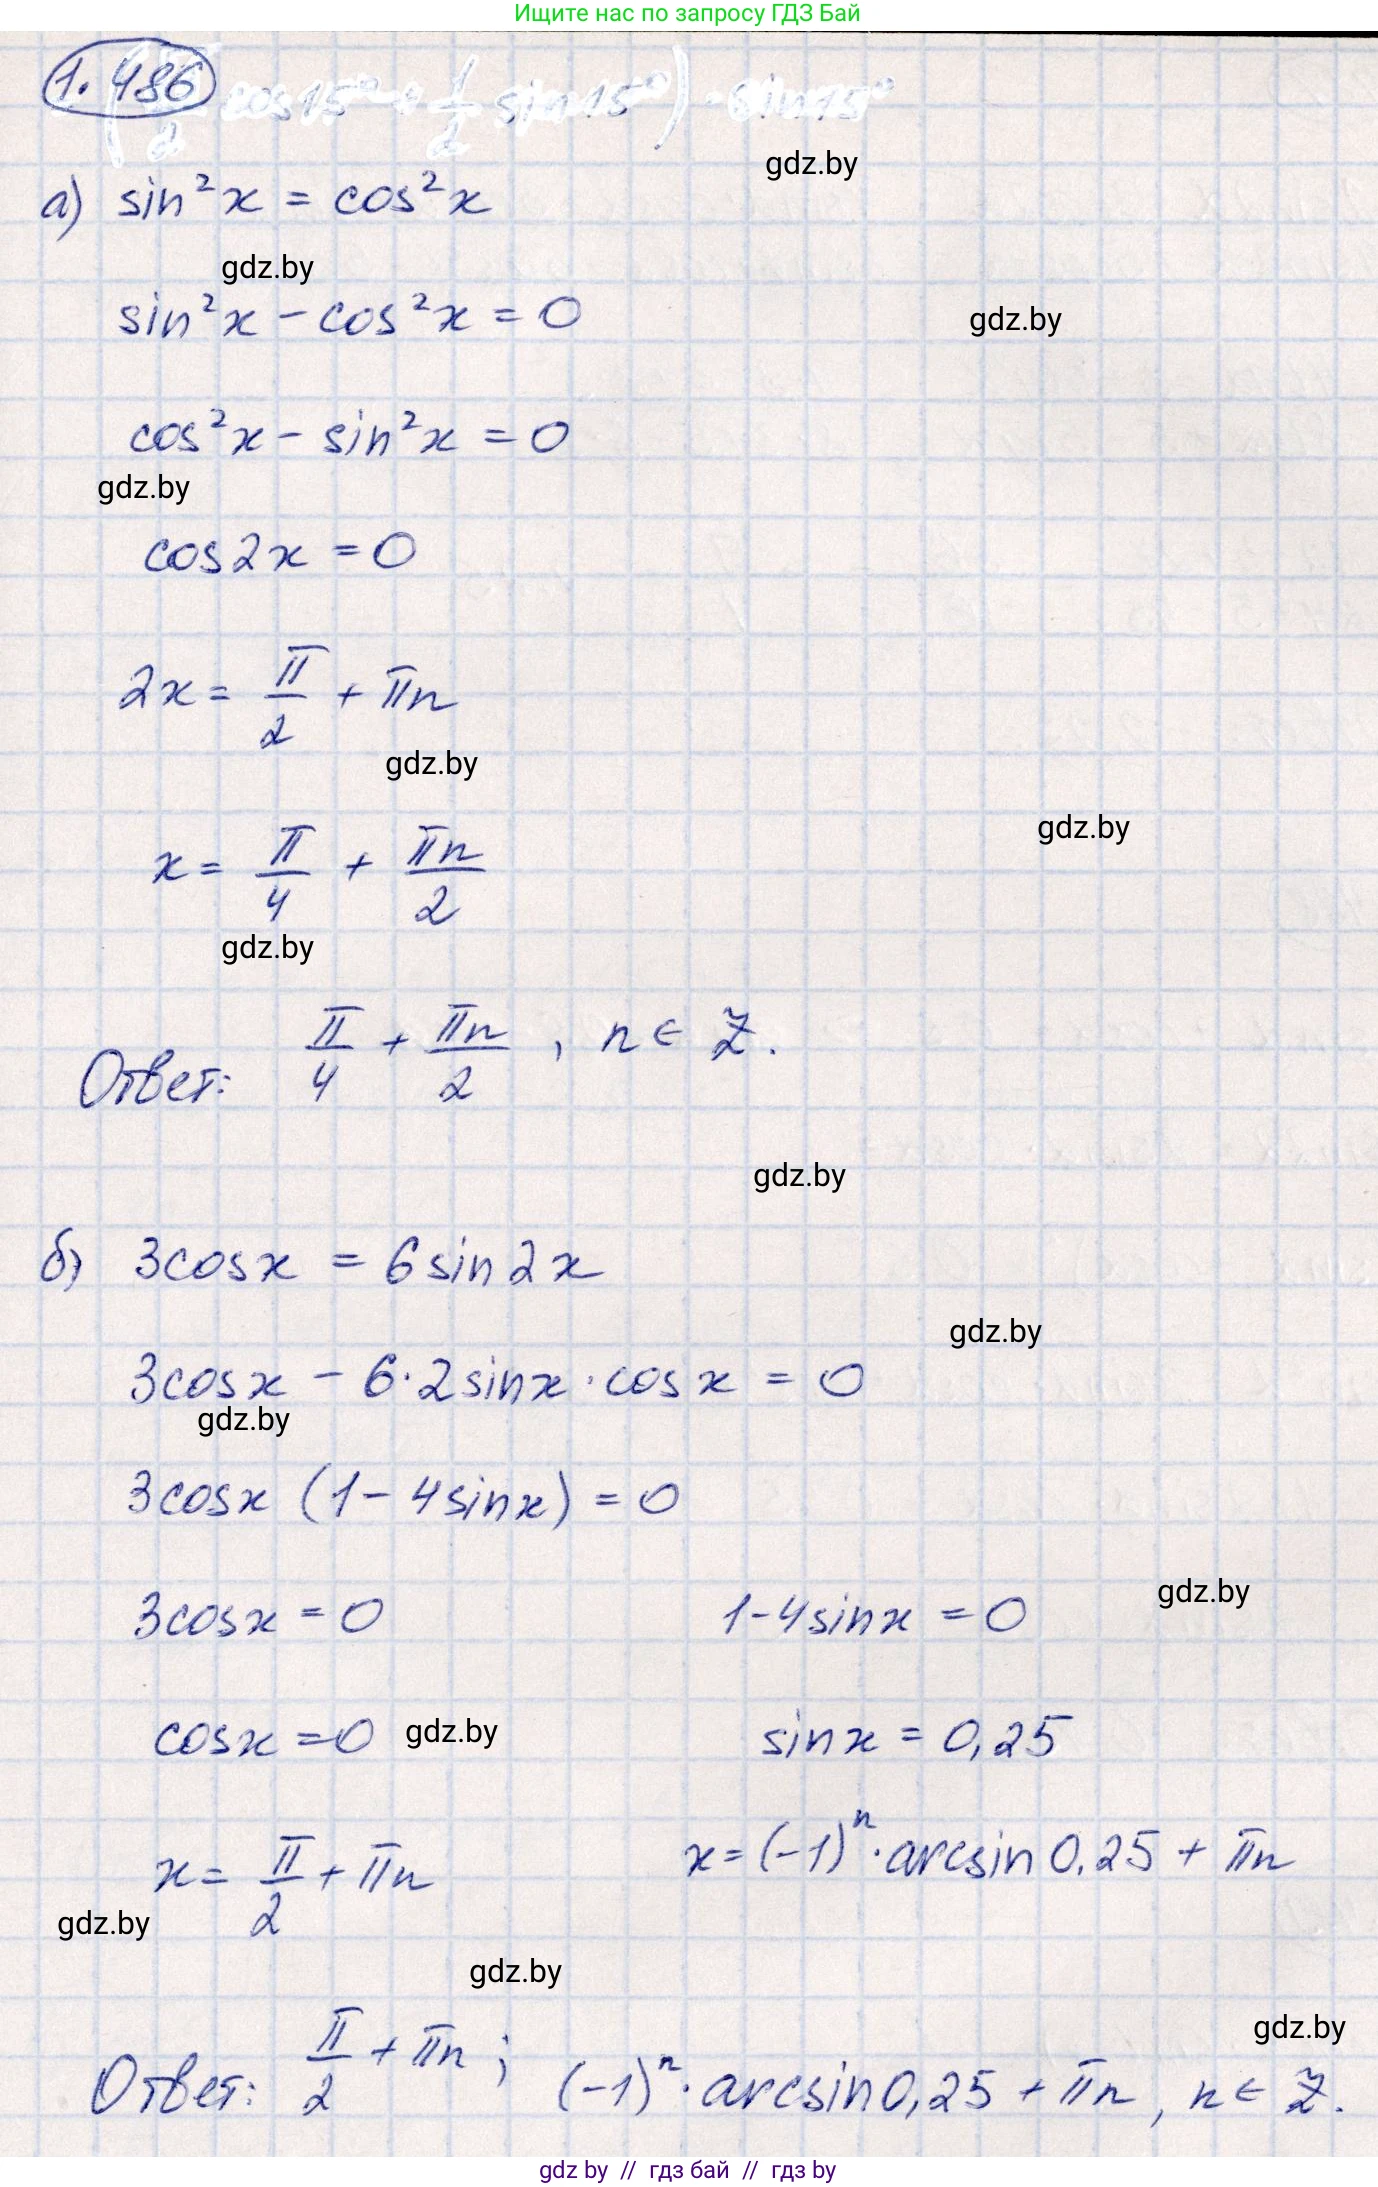 Ищите нас по запросу ГДЗ Бай
1.486
gdz.by
а) sin²x = cos²x
gdz.by
sin²x - cos²x = 0
gdz.by
cos²x - sin²x = 0
gdz.by
cos2x = 0
2x = π/2 + πn
gdz.by
gdz.by
x = π/4 + πn/2
gdz.by
Ответ: π/4 + πn/2, n ∈ Z.
gdz.by
б) 3cosx = 6sin2x
gdz.by
3cosx - 6·2sinx·cosx = 0
gdz.by
3cosx (1 - 4sinx) = 0
gdz.by
3cosx = 0 1-4sinx = 0
cosx = 0 gdz.by sinx = 0,25
x = π/2 + πn x = (-1)ⁿ·arcsin0,25 + πn
gdz.by
gdz.by
gdz.by
Ответ: π/2 + πn; (-1)ⁿ·arcsin0,25 + πn, n ∈ Z.
gdz by // гдз бай // гдз by